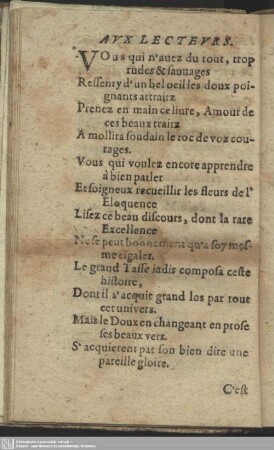 AVX LECTEVRS.
VOus qui n'auez du tout, trop
rudes & sauuages
Ressenty d'un bel oeil les doux poi-
gnants attraitz
Prenez en main ce liure, Amour de
ces beaux traitz
Amollira soudain le roc de voz cou-
rages.
Vous qui voulez encore apprendre
à bien parler
Et soigneux recueillir les fleurs de l'
Eloquence
Lisez ce beau discours, dont la rare
Excellence
Ne se peut bonnement qu'a soy mes-
me egaler.
Le grand Tasse iadis composa ceste
histoire,
Dont il s'acquit grand los par tout
cet univers.
Mais le Doux en changeant en prose
ses beaux vers.
S'acquierent par son bien dire une
pareille gloire.
C'est